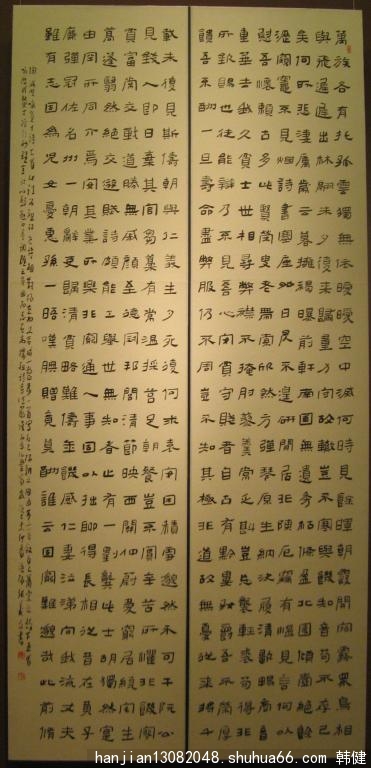 萬族各有托孤雲獨無依曖曖空中滅何時見餘暉朝霞開宿霧衆鳥相
與飛遲遲出林翮未夕復來歸量力守故轍豈不寒與飢知音苟不存已
矣何所悲淒厲歲云暮擁褐曝前軒南圃無遺秀枯條盈北園傾壺絕餘
瀝闚竈不見烟詩書塞座外日昃不遑研閒居非陳厄竊有慍見言何以
慰吾懷賴古多此賢榮叟老帶索欣然方彈琴原生納決履清歌暢商音
重華去我久貧士世相尋弊襟不掩肘藜羹常乏斟豈忘襲輕裘苟得非
所欽賜也徒能辯乃不見吾心安貧守賤者自古有黔婁好爵吾不縈厚
饋吾不酬一旦壽命盡弊服仍不周豈不知其極非道故無憂從來將千
載未復見斯儔朝與仁義生夕死復何求袁安困積雪邈然不可干阮公
見錢入即日棄其官芻藁有常溫採莒足朝餐豈不實辛苦所懼非飢寒貧
富常交戰道勝無戚顏至德冠邦閭清節映西關仲蔚愛窮居繞宅生
蒿蓬翳然絕交游賦詩頗能工舉世無知者止有一劉龔此士胡獨然實
由罕所同介焉安其業所樂非窮通人事固以拙聊得長相從昔在黃子
廉彈冠佐名州一朝辭吏歸清貧略難儔年飢感仁妻泣涕向我流丈夫
雖有志固爲兒女憂惠孫一晤嘆腆贈竟莫酬誰云固窮難邈哉此前脩
hanjian13082048.shuhua66.com 韩健